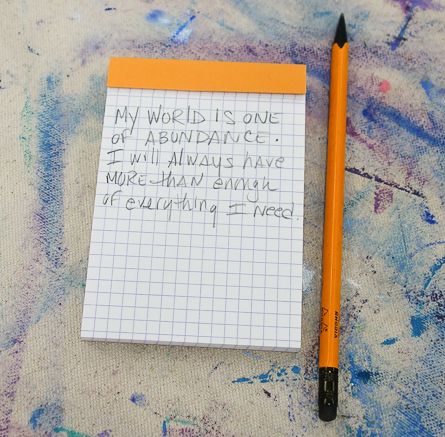 MY WORLD IS ONE
OF ABUNDANCE.
I will Always have
MORE than enough
of everything I Need.